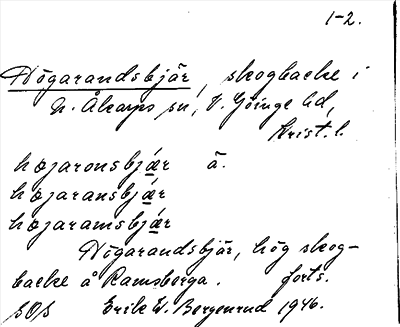 1-2.
Högarandsbjär, skogbacke i
N. Åkarps sn, V. Göinge hd,
Krist. l.
høgaronsbjǽr å.
høgaransbjǽr
høgaramsbjǽr
Högarandsbjär, hög skog-
backe å Ramsberga. forts.
SOS Erik W. Bergenrud 1946.